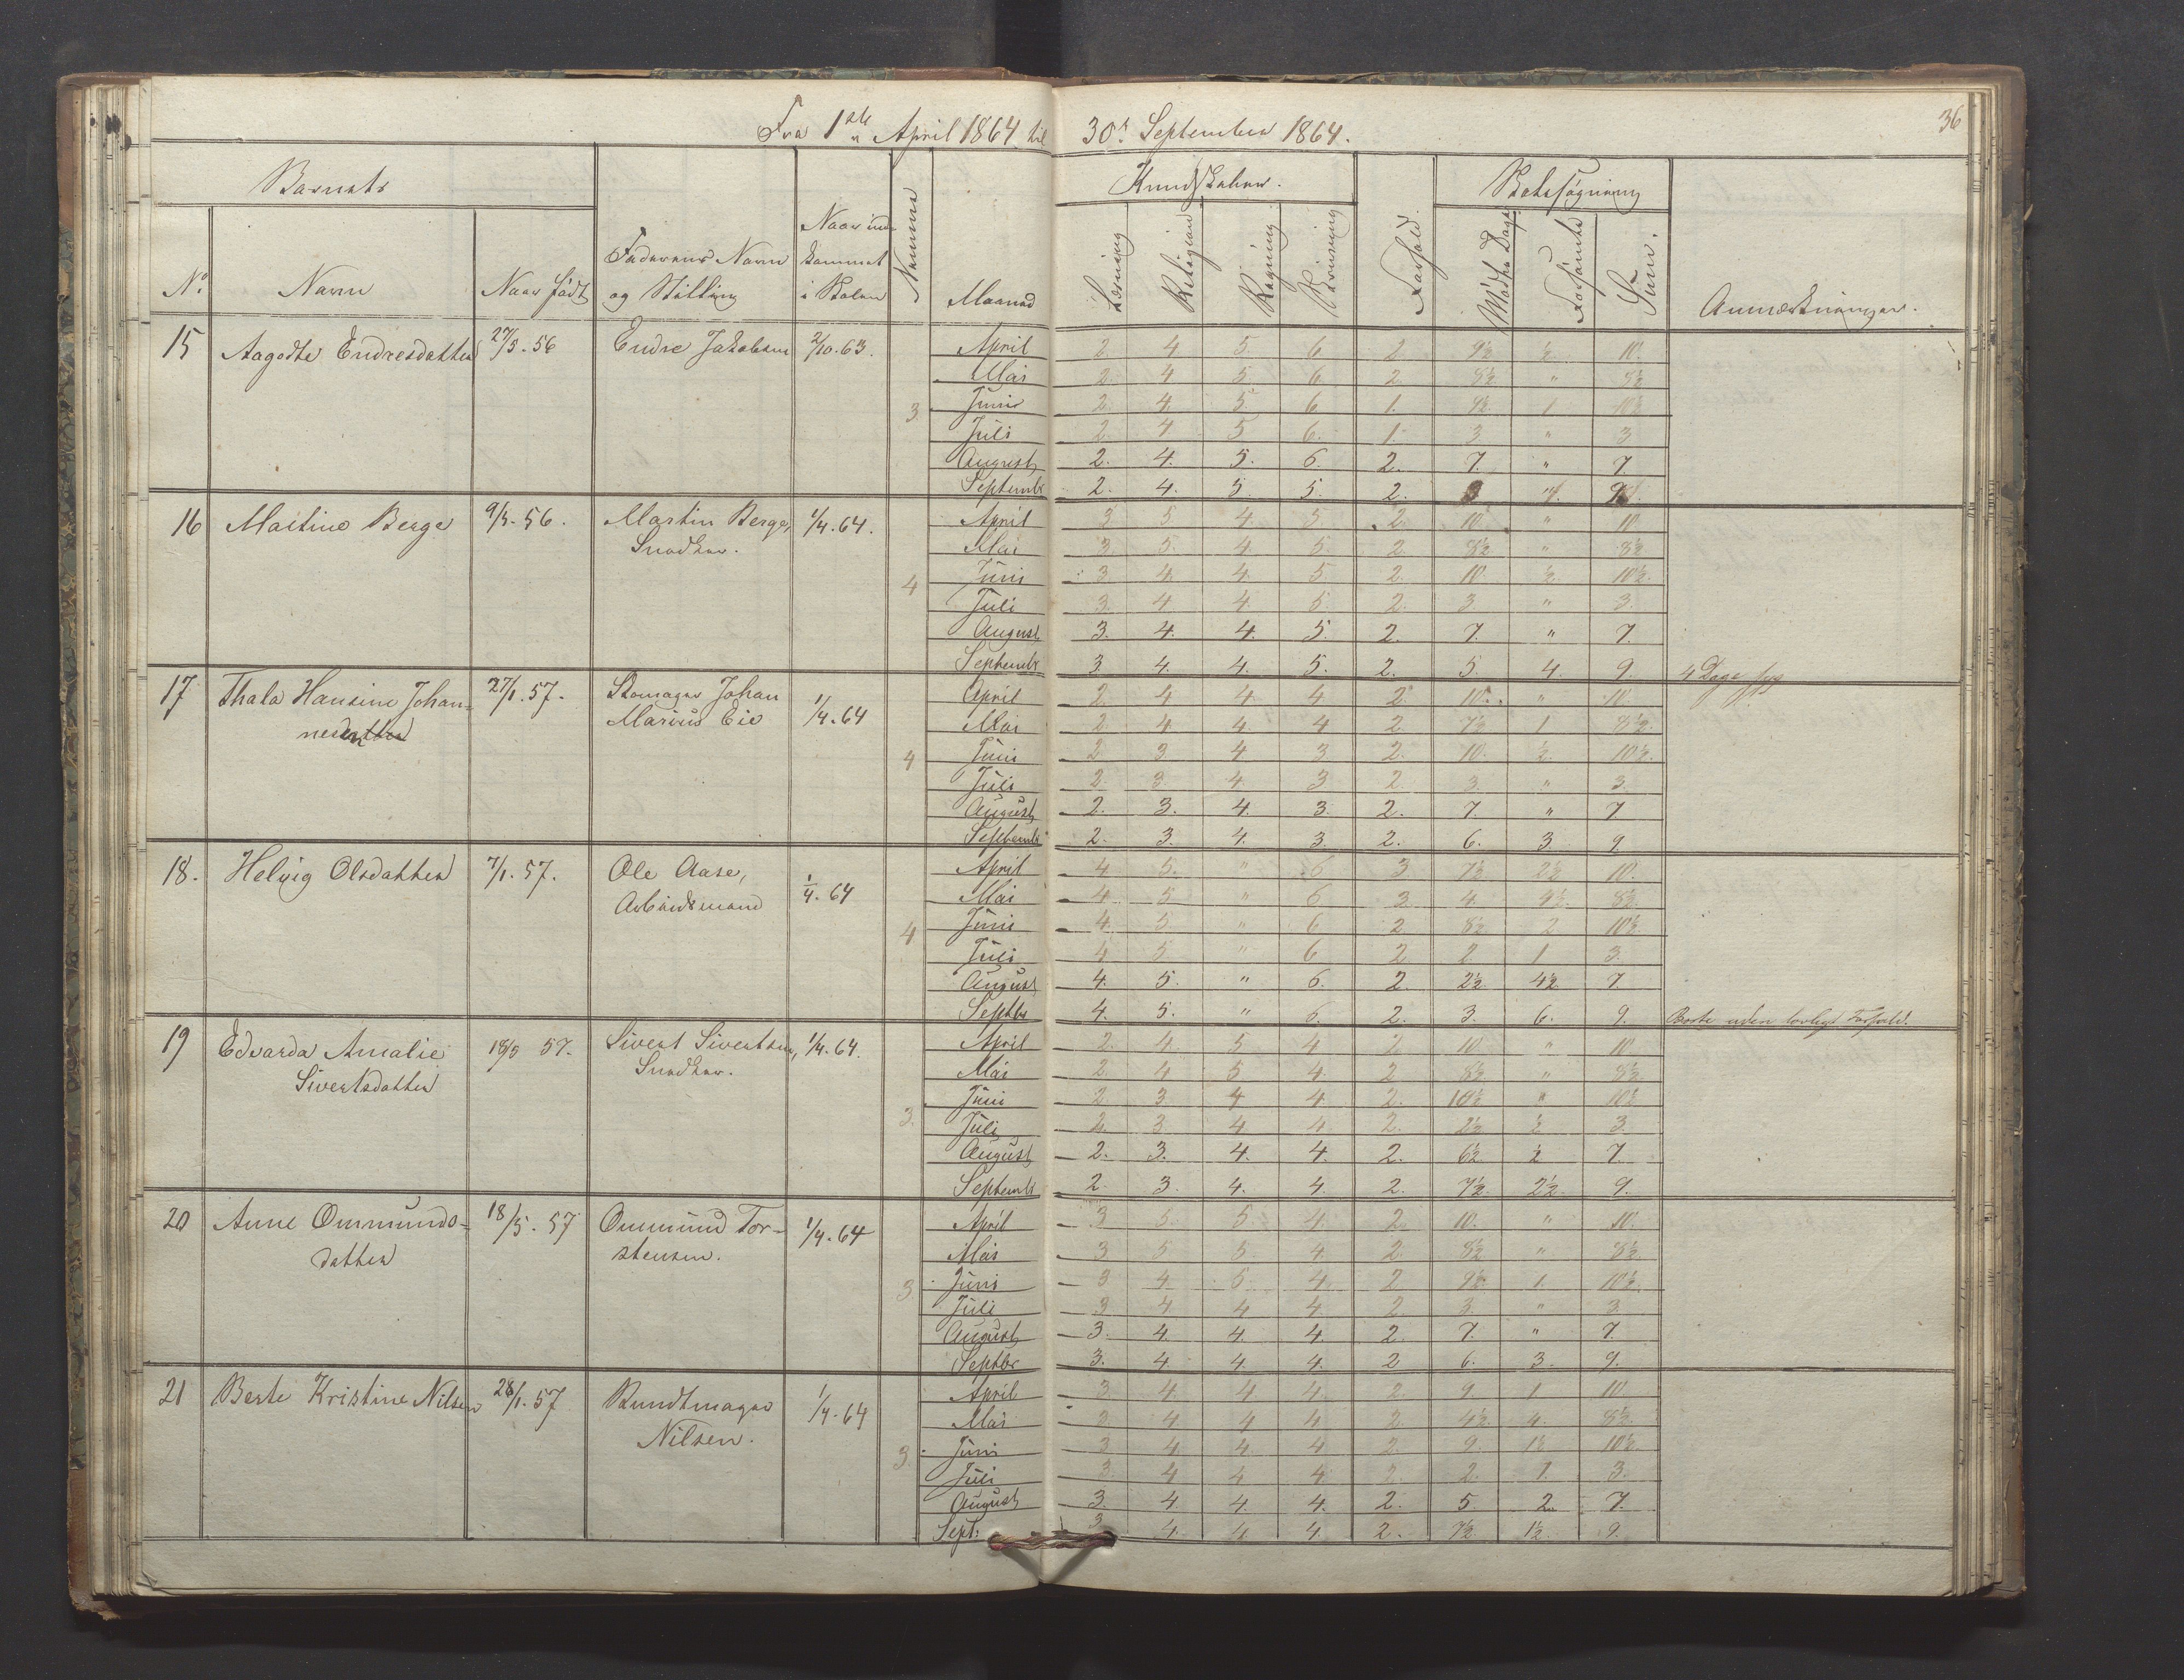 36
Fra 1ste April 1864 til 30te September 1864.
Barnets
Kundskaber.
Skolesøgning
No. Navn Naar født Faderens Navn og Stilling Naar indkommet i Skolen Numme Maaned Læsning Religion Regning Skrivning Forhold Mødte Dage Forsømte Sum. Anmærkninger.
15 Aagodte Endresdatter 27/5. 56 Endre Jakobsen 2/10. 63. 3
April 2. 4 5. 6 2 9½ ½ 10.
Mai 2. 4 5 6 2 8½ " 8½
Juni 2. 4. 5 6 1. 9½ 1 10½
Juli 2. 4 5 6. 1. 3 " 3
August 2. 4. 5. 6. 2. 7. " 7.
Septembr 2. 4. 5. 5. 2. 9
16 Maline Berge 9/5. 56. Martin Berge, 1/4. 64. 4
Snedker.
April 3 5 4 5 2 10. " 10
Mai 3 5. 4. 5. 2 8½ " 8½
Juni 3. 4. 4. 5. 2. 10. ½ 10½.
Juli 3. 4 4. 5. 2. 3 " 3.
August 3. 4. 4. 5. 2. 7. " 7.
Septembr 3. 4. 4. 5. 2. 5. 4. 9. 4 Dage syg
17 Thala Hansine Johan- 27/1. 57. Skomager Johan 1/4. 64 4
nesen Marius Eie
April 2. 4 4 4 2 10. " 10
Mai 2. 4 4. 4 2 7½ 1 8½.
Juni 2 3 4 3 2. 10. ½ 10½.
Juli 2. 3. 4. 3 2 3. " 3.
August 2. 3. 4. 3. 2. 7. " 7
Septembr 2. 3. 4. 3. 2. 6. 3 9.
18. Helvig Olsdatter 7/1. 57. Ole Aase, 1/4. 64 4
Arbeidsmand
April 4 5. " 6 3 7½ 2½ 10.
Mai 4 5 " 6 3 4. 4½. 8½
Juni 4. 5. " 6 2 8½ 2 10½
Juli 4 5 " 6 2 2. 1 3.
August 4. 5. " 6. 2. 2½ 4½ 7.
Septbr 4. 5. " 6. 2. 3. 6. 9. Borte uden lovligt Forfald.
19 Edvarda Amalie 18/5 57. Sivert Sivertsen, 1/4. 64. 3.
Sivertsdatter Snedker.
April 2. 4. 5 4 2 10 " 10
Mai 2. 4 5 4. 2 8½ " 8½
Juni 2 3 4 4 2. 10½ " 10½
Juli 2. 3. 4 4 2. 2½ ½ 3.
August 2. 3. 4. 4. 2. 6½ ½ 7.
Septembr 2. 3. 4. 4. 2. 7½. 2½. 9.
20 Anne Ommunds- 18/5. 57 Ommund Tor- 1/4. 64 3
datter stensen.
April 3 5 5 4 2 10. " 10.
Mai 3 5 5. 4. 2. 8½ " 8½.
Juni 3 4. 5. 4. 2 9½ 1. 10½.
Juli 3 4. 4 4. 2 3. " 3.
August 3. 4. 4. 4. 2 7. " 7.
Septbr 3. 4. 4. 4. 2 6. 3. 9.
21 Berte Kristine Nilsen 28/1. 57 Bundtmager 1/4. 64 3
Nilsen.
April 3. 4. 4 4. 2. 9. 1 10
Mai 3. 4. 4 4. 2. 4½. 4. 8½.
Juni 3 4. 4. 4 2 9. 1½ 10½.
Juli 3. 4 4 4. 2 2. 1. 3.
August 3. 4. 4. 4. 2. 5. 2. 7.
Sept: 3 4. 4 4. 2. 7½. 1½ 9.